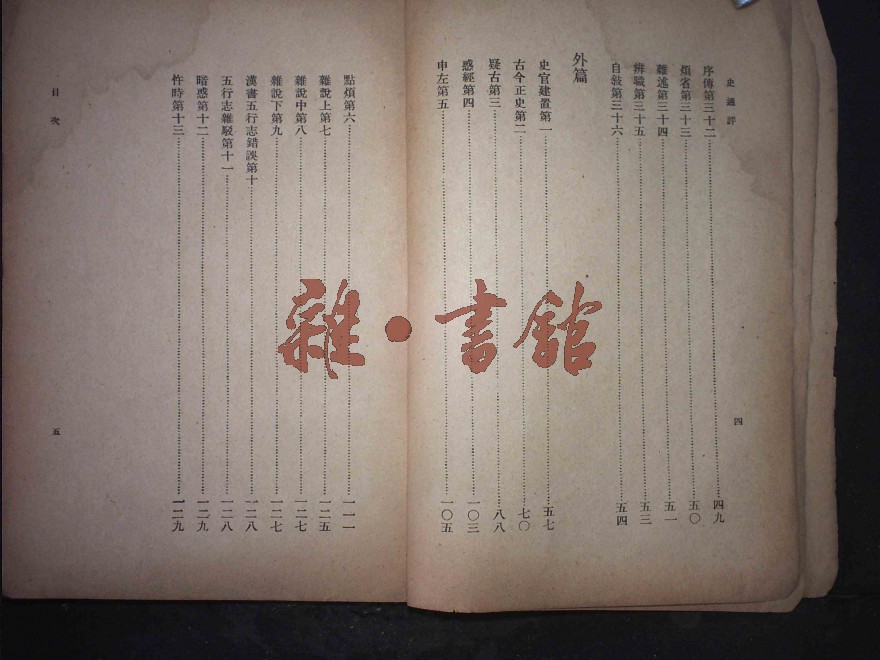 史通評
序傳第三十二…四九
煩省第三十三…五〇
雜述第三十四…五一
辨職第三十五…五三
自敍第三十六…五四
外篇
史官建置第一…五七
古今正史第二…七〇
疑古第三…八八
惑經第四…一〇三
申左第五…一〇五
四
點煩第六…一一一
雜說上第七…一二五
雜說中第八…一二七
雜說下第九…一二七
漢書五行志錯誤第十…一二八
五行志雜駁第十一…一二八
暗惑第十二…一二九
忤時第十三…一二九
目次
五
雜·書館